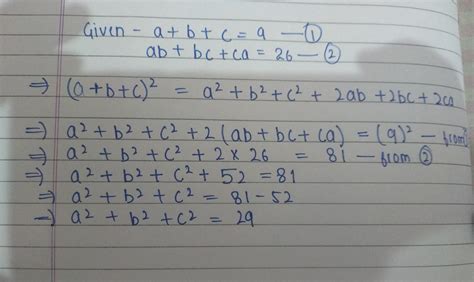 Given - a + b + c = 9 — ①
ab + bc + ca = 26 — ②
⇒ (a+b+c)² = a² + b² + c² + 2ab + 2bc + 2ca
⇒ a² + b² + c² + 2(ab + bc + ca) = (9)² — from
⇒ a² + b² + c² + 2 × 26 = 81 — from ②
⇒ a² + b² + c² + 52 = 81
⇒ a² + b² + c² = 81 - 52
⇒ a² + b² + c² = 29